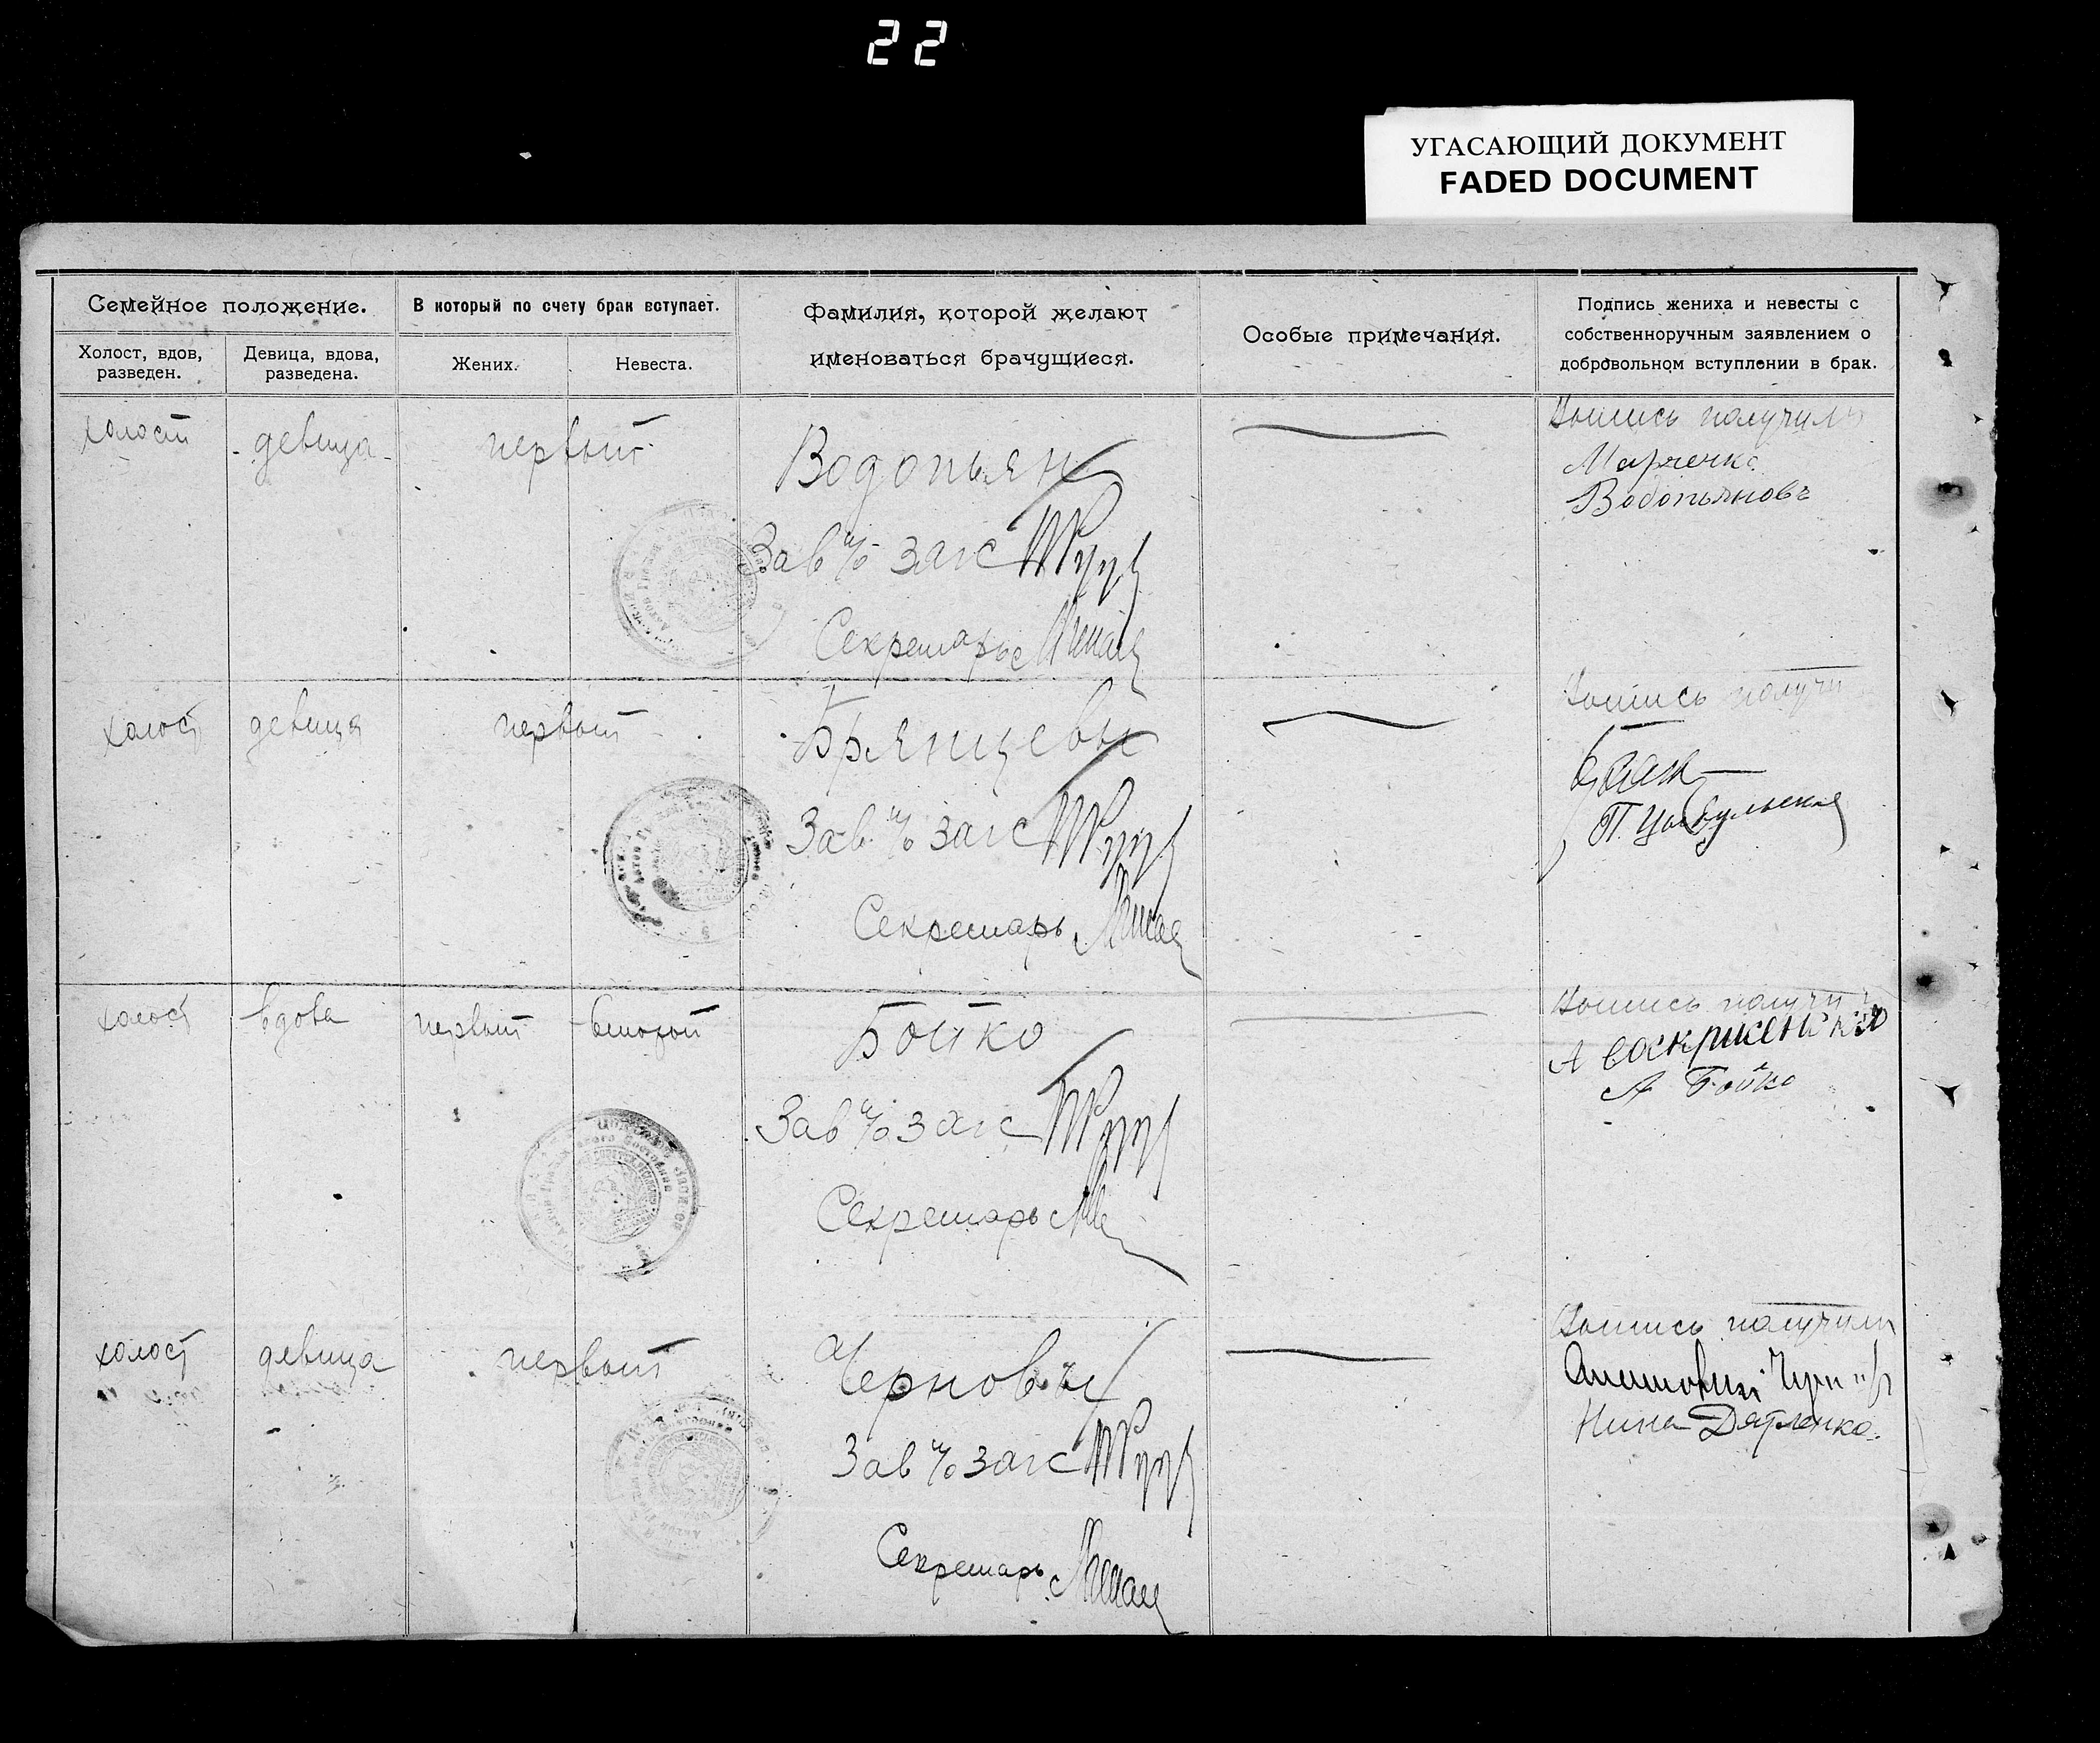 22
УГАСАЮЩИЙ ДОКУМЕНТ
FADED DOCUMENT
Семейное положение.
В который по счету брак вступает.
Фамилия, которой желают
именоваться брачущиеся.
Особые примечания.
Подпись жениха и невесты с
собственноручным заявлением о
добровольном вступлении в брак.
Холост, вдов,
разведен.
Девица, вдова,
разведена.
Жених.
Невеста.
холост
девица
первый
Водопьян
Зав п/о загс
Секретарь
получили
Марченко
Водопьяновъ
холост
девица
первый
Брянцевы
Зав. п/о загс
Секретарь
П. Цыбульская
холост
вдова
первый
второй
Бойко
Зав п/о загс
Секретарь
А Воскрисенская
А Бойко
холост
девица
первый
Черновы
Зав п/о загс
Секретарь
получили
Нина Дятленко.